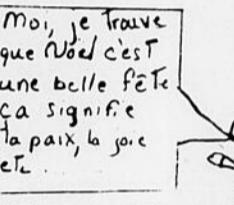 Moi, je trouve
que Noël c'est
une belle fête
ça signifie
la paix, la joie
etc.